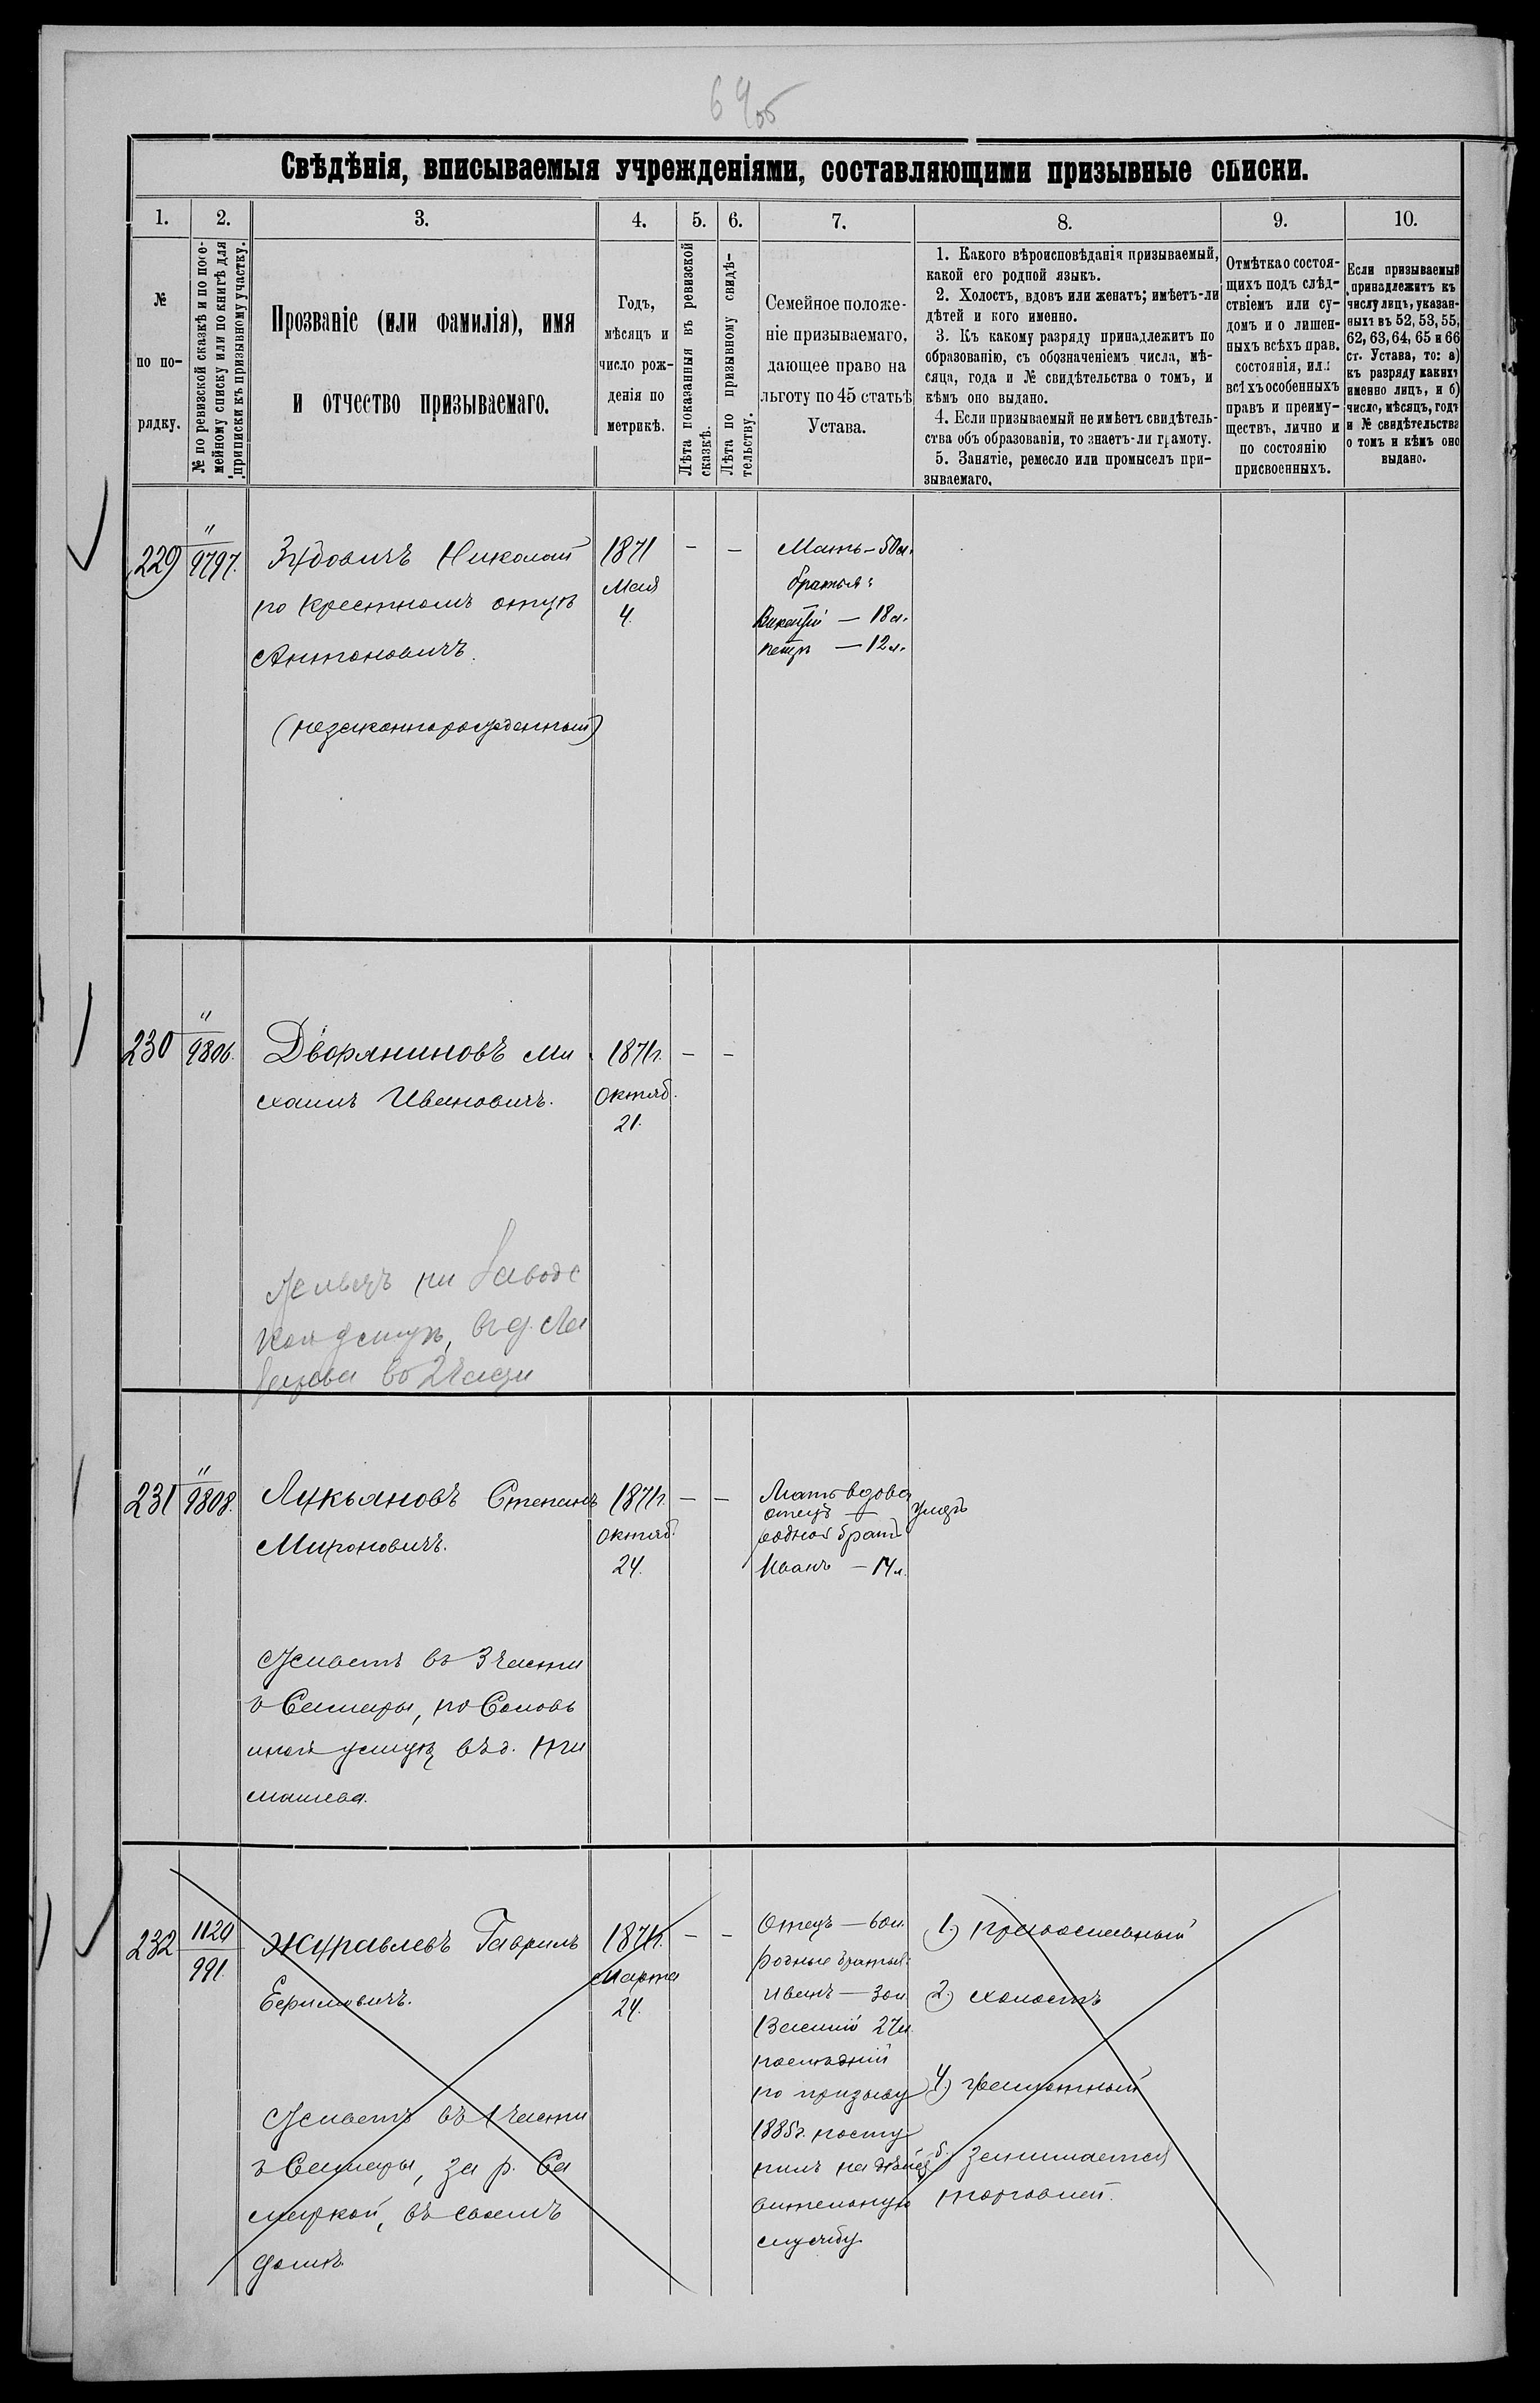 69об
Свѣдѣнія, вписываемыя учрежденіями, составляющими призывные списки.
1. 2. 3. 4. 5. 6. 7. 8. 9. 10.
№
по по-
рядку.
№ по ревизской сказкѣ и по посе-
мейному списку или по книгѣ для
приписки къ призывному участку.
Прозваніе (или фамилія), имя
и отчество призываемаго.
Годъ,
мѣсяцъ и
число рож-
денія по
метрикѣ.
Лѣта показанныя въ ревизской
сказкѣ.
Лѣта по призывному свидѣ-
тельству.
Семейное положе-
ніе призываемаго,
дающее право на
льготу по 45 статьѣ
Устава.
1. Какого вѣроисповѣданія призываемый,
какой его родной языкъ.
2. Холостъ, вдовъ или женатъ; имѣетъ-ли
дѣтей и кого именно.
3. Къ какому разряду принадлежитъ по
образованію, съ обозначеніемъ числа, мѣ-
сяца, года и № свидѣтельства о томъ, и
кѣмъ оно выдано.
4. Если призываемый не имѣетъ свидѣтель-
ства объ образованіи, то знаетъ-ли грамоту.
5. Занятіе, ремесло или промыселъ при-
зываемаго.
Отмѣтка о состоя-
щихъ подъ слѣд-
ствіемъ или су-
домъ и о лишен-
ныхъ всѣхъ прав.
состоянія, или
всѣхъ особенныхъ
правъ и преиму-
ществъ, лично и
по состоянію
присвоенныхъ.
Если призываемый
принадлежитъ къ
числу лицъ, указан-
ныхъ въ 52, 53, 55,
62, 63, 64, 65 и 66
ст. Устава, то: а)
къ разряду какихъ
именно лицъ, и б)
число, мѣсяцъ, годъ
и № свидѣтельства
о томъ и кѣмъ оно
выдано.
229
"
9797.
Николай
по крестномъ отцѣ
Антоновичъ.
(незаконнорожденный)
1871
Мая
4.
—
—
Мать — 50 л.
братья:
Викентій — 18 л.
Петръ — 12 л.
230
"
9806.
Дворяниновъ Ми
хаилъ Ивановичъ.
1871г.
Октяб.
21.
—
—
на Заводс
кой
во 2 части
231
"
9808.
Лукьяновъ Степанъ
Мироновичъ.
1871г.
Октяб.
24.
—
—
Мать вдова
отецъ — умеръ
родной братъ
Иванъ — 14 л.
Живетъ въ 3 части
г Самары, по Соловь
иной улицѣ въ д.
232
1120
991.
Журавлевъ Гаврилъ
Ефимовичъ.
1871г.
Марта
24.
—
—
Живетъ въ 1 части
г Самары, за р. Са
маркой, въ своемъ
домѣ
Отецъ — 60 л
родные братья:
Иванъ — 30 л
Василій 27 л.
послѣдній
по призыву
1885г. посту
пилъ на дѣйст
вительную
службу
1.) православный
2.) холостъ
4.) грамотный
5. Занимается
торговлей.